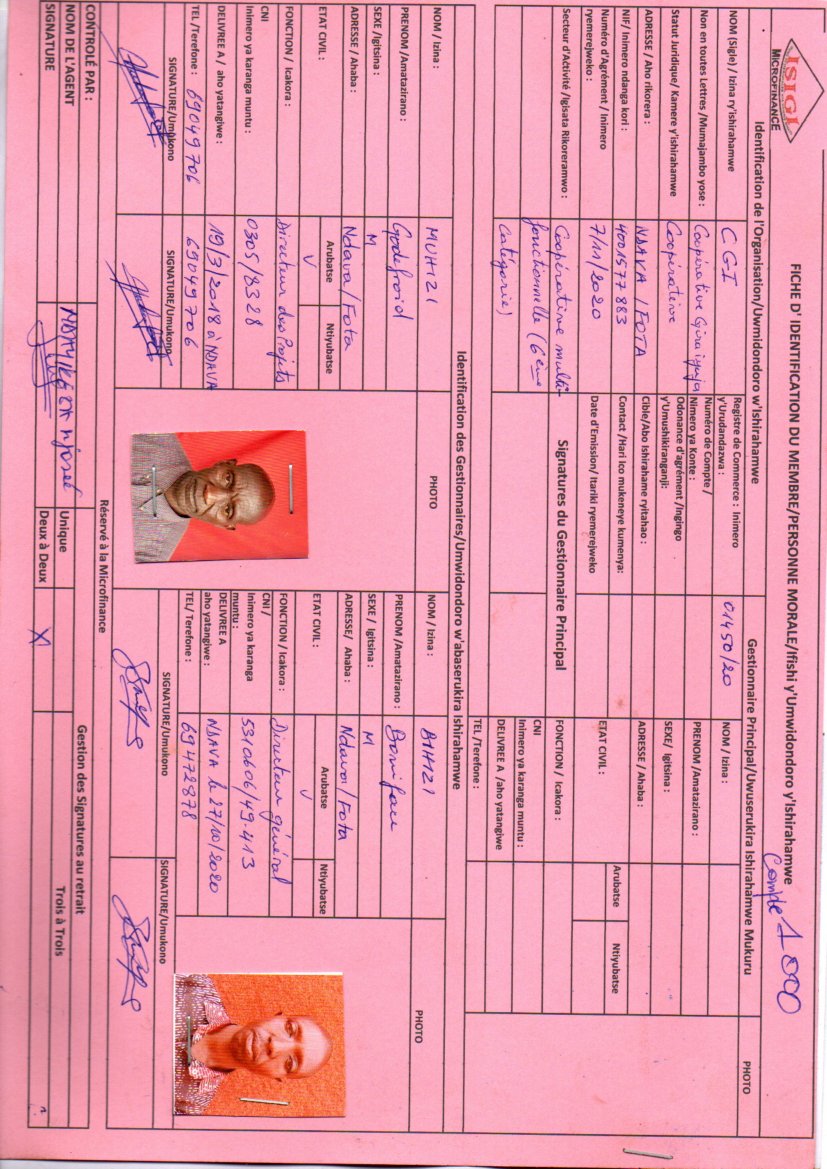 ISIGI
MICROFINANCE
FICHE D' IDENTIFICATION DU MEMBRE/PERSONNE MORALE/Ifishi y'Umwidondoro y'Ishirahamwe
Compte 1 800
Identification de l'Organisation/Uwmidondoro w'Ishirahamwe
Gestionnaire Principal/Uwuserukira Ishirahamwe Mukuru
PHOTO
NOM (Sigle) / Izina ry'ishirahamwe
CGI
Registre de Commerce : Inimero y'Urudandazwa :
01450/20
NOM / Izina :
Non en toutes Lettres /Mumajambo yose :
Coopérative Giraiyuja
Numéro de Compte / Nimero ya Konte :
PRENOM /Amatazirano :
Statut Juridique/ Kamere y'ishirahamwe
Coopérative
Odonance d'agrément /Ingingo y'Umushikiranganji:
SEXE/ Igitsina :
ADRESSE / Aho rikorera :
NDAVA / FOTA
Cible/Abo Ishirahame ryitahao :
ADRESSE / Ahaba :
NIF/ Inimero ndanga kori :
4001577883
Contact /Hari ico mukeneye kumenya:
ETAT CIVIL :
Arubatse
Ntiyubatse
Numéro d'Agrément / Inimero ryemerejweko :
7/11/2020
Date d'Emission/ Itariki ryemerejweko
Secteur d'Activité /Igisata Rikoreramwo :
Coopérative multi-
fonctionnelle (6ème
catégorie)
Signatures du Gestionnaire Principal
FONCTION / Icakora :
CNI
Inimero ya karanga muntu :
DELIVREE A /aho yatangiwe
TEL /Terefone :
Identification des Gestionnaires/Umwidondoro w'abaserukira Ishirahamwe
NOM / Izina :
MUHIZI
PHOTO
NOM / Izina :
BIHIZI
PHOTO
PRENOM /Amatazirano :
Godefroid
PRENOM /Amatazirano :
Boniface
SEXE /Igitsina :
M
SEXE / Igitsina :
M
ADRESSE / Ahaba :
Ndava/Fota
ADRESSE/ Ahaba :
Ndava/Fota
ETAT CIVIL :
Arubatse
Ntiyubatse
V
ETAT CIVIL :
Arubatse
Ntiyubatse
V
FONCTION / Icakora :
Directeur des Projets
FONCTION / Icakora :
Directeur général
CNI
Inimero ya karanga muntu :
0305/8328
CNI /
Inimero ya karanga muntu :
531.0606/49.413
DELIVREE A / aho yatangiwe :
19/3/2018 à NDAVA
DELIVREE A
aho yatangiwe :
NDAVA le 27/10/2020
TEL /Terefone :
69049706
69049706
TEL/ Terefone :
69472878
SIGNATURE/Umukono
SIGNATURE/Umukono
SIGNATURE/Umukono
SIGNATURE/Umukono
Réservé à la Microfinance
CONTROLÉ PAR :
Gestion des Signatures au retrait
NOM DE L'AGENT
Unique
Trois à Trois
SIGNATURE
Deux à Deux
X